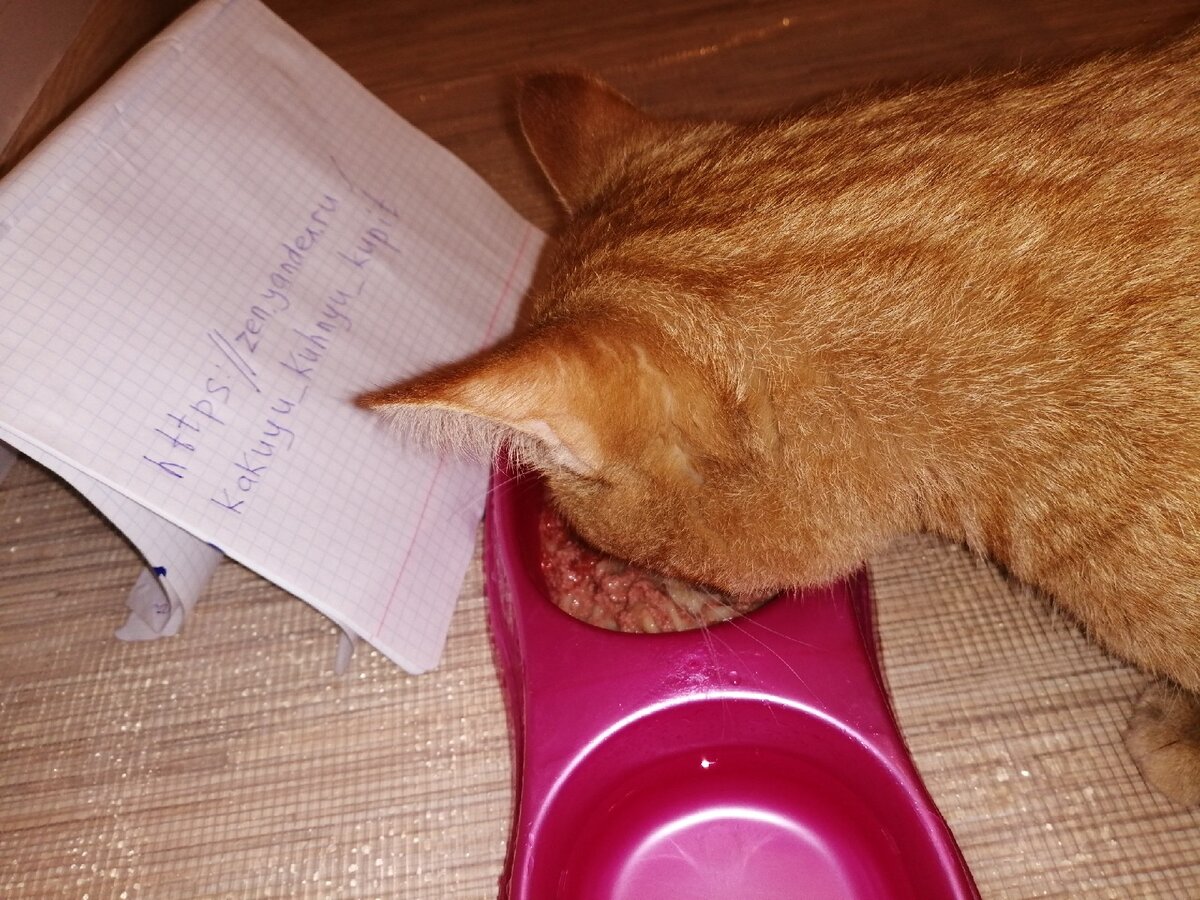 https://zen.yandex.ru/
kakuyu_kuhnyu_kupit